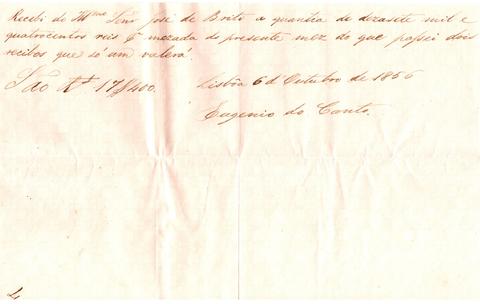 Recebi do Illmo Senr José de Brito a quantia de dezasete mil e
quatrocentos reis q mezada do presente mez do que passei dois
recibos que só um valerá.
São Rs 17$400. Lisbôa 6 d'Outubro de 1856
Eugenio do Canto.